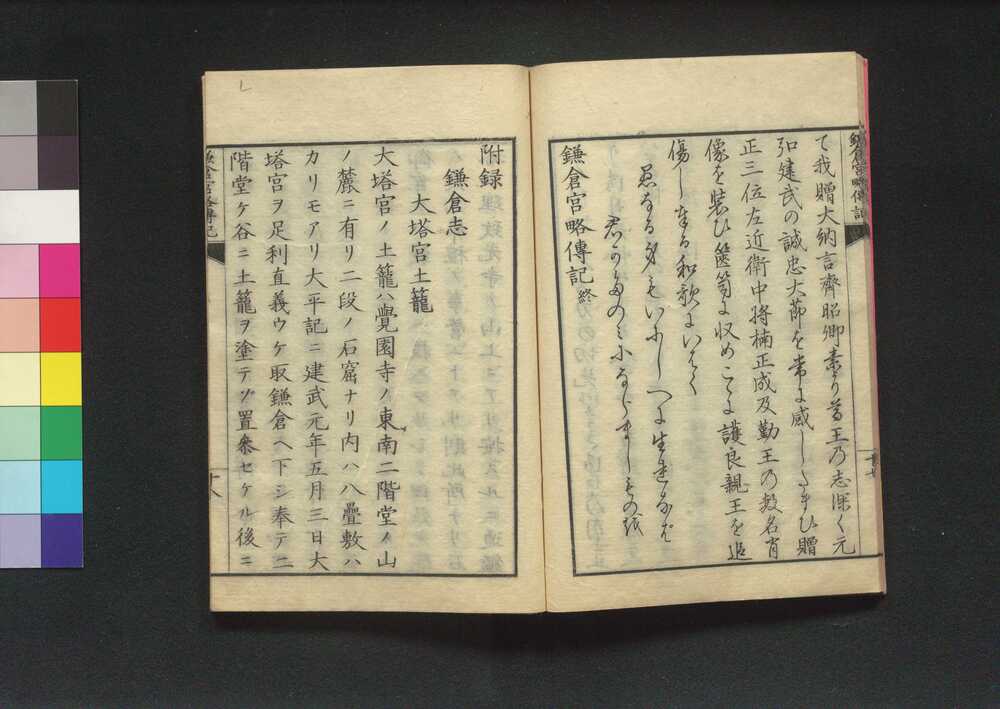 鎌倉宮略傳記
て我贈大納言齊昭卿素より尊王乃志深く元
弘建武の誠忠大節を常に感したまひ贈
正三位左近衛中将楠正成及勤王の数名肖
像を装ひ篋笥に収めことに護良親王を追
傷し奉る和歌にいはく
愚なる身もいにしへに生れなば
君かための
鎌倉宮略傳記終
附録
鎌倉志
大塔宮土籠
大塔宮ノ土籠ハ覺園寺ノ東南二階堂ノ山
ノ麓ニ有リ二段ノ石窟ナリ内ハ八疊敷ハ
カリモアリ大平記ニ建武元年五月三日大
塔宮ヲ足利直義ウケ取鎌倉ヘ下シ奉テ二
階堂ケ谷ニ土籠ヲ塗テゾ置參セケル後ニ
鎌倉宮略傳記
十八